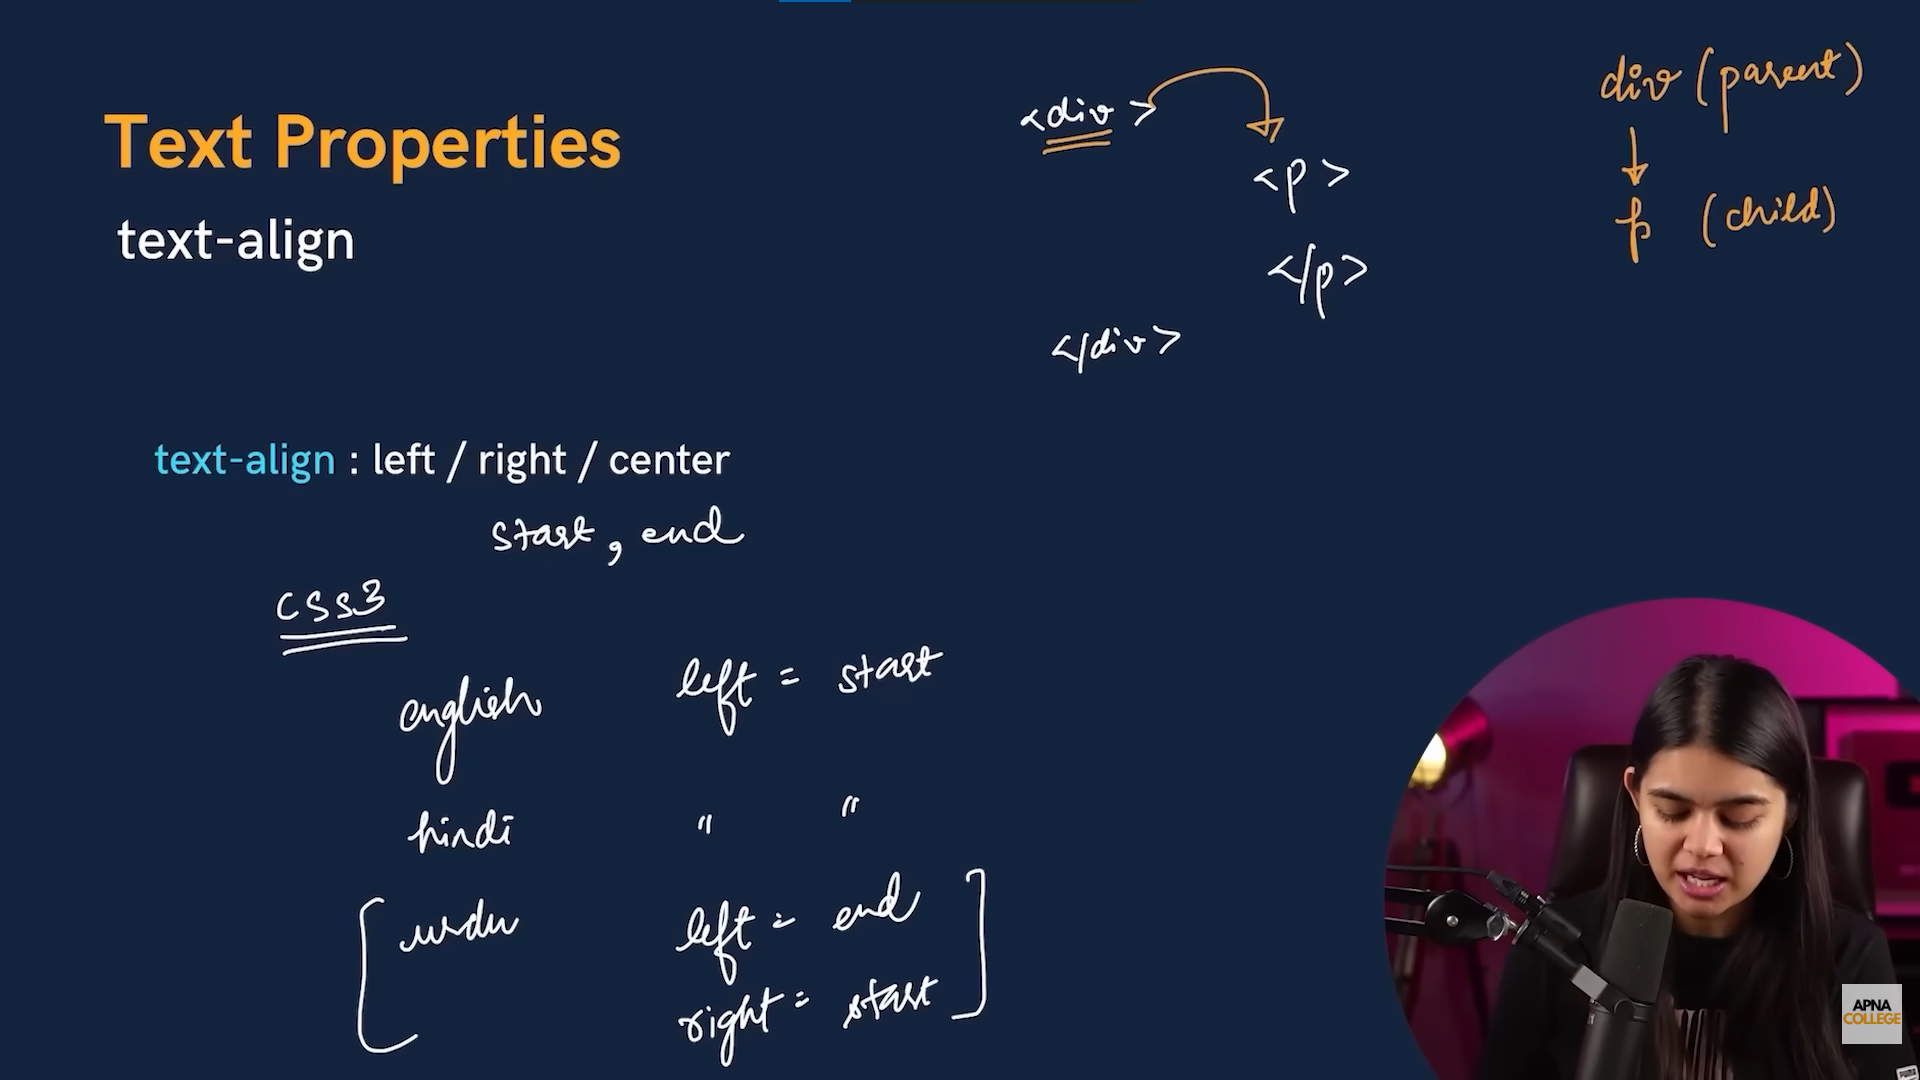 Text Properties
text-align
<div>
<p>
</p>
</div>
div (parent)
p (child)
text-align : left / right / center
start, end
CSS3
english left = start
hindi " "
urdu left = end
right = start
APNA
COLLEGE